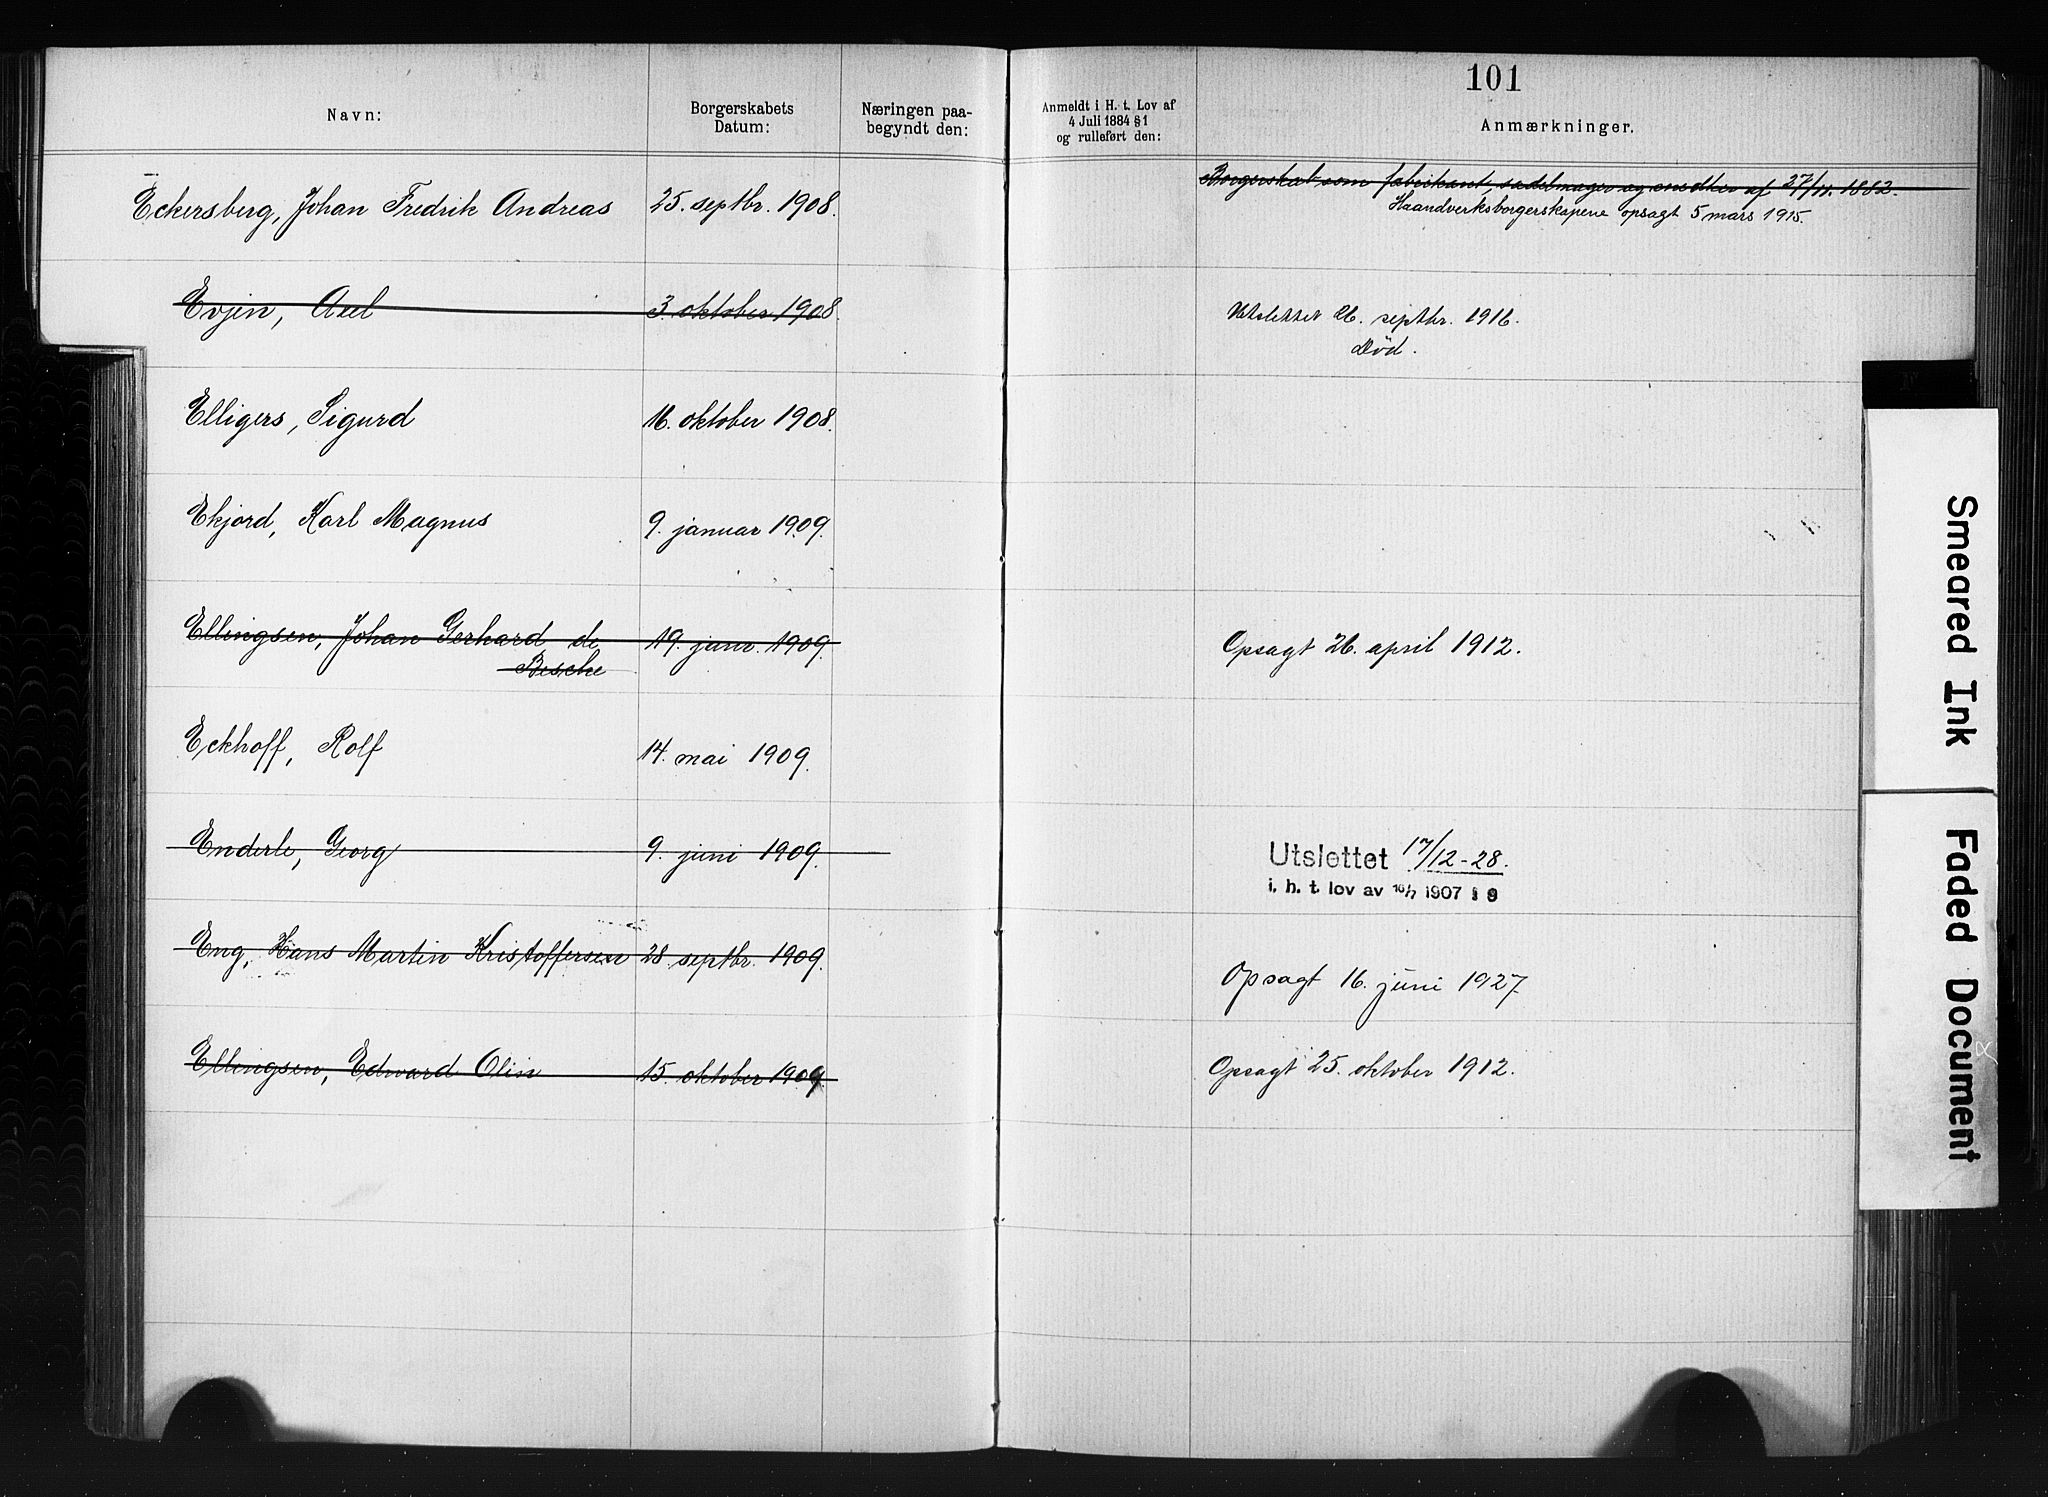 101
Navn:
Borgerskabets
Datum:
Næringen paa-
begyndt den:
Anmeldt i H. t. Lov af
4 Juli 1884 § 1
og rulleført den:
Anmærkninger.
Eckersberg, Johan Fredrik Andreas 25. septbr. 1908. Borgerskab som fabrikant, sadelmager og snedker af 27/11. 1882.
Haandverksborgerskapene opsagt 5 mars 1915.
Evjen, Axel 3. oktober 1908. Utslettet 26. septbr. 1916.
Død.
Elligers, Sigurd 16. oktober 1908.
Ekjord, Karl Magnus 9. januar 1909.
Ellingsen, Johan Gerhard de 19. 1909. Opsagt 26. april 1912.
Besche
Eckhoff, Rolf 14. mai 1909.
Enderle, Georg 9. juni 1909. Utslettet 17/12-28.
i. h. t. lov av 16/7 1907 § 9
Eng, Hans Martin Kristoffersen 28. septbr. 1909. Opsagt 16. juni 1927.
Ellingsen, Edward Olin 15. oktober 1909. Opsagt 25. oktober 1912.
Smeared Ink
Faded Document